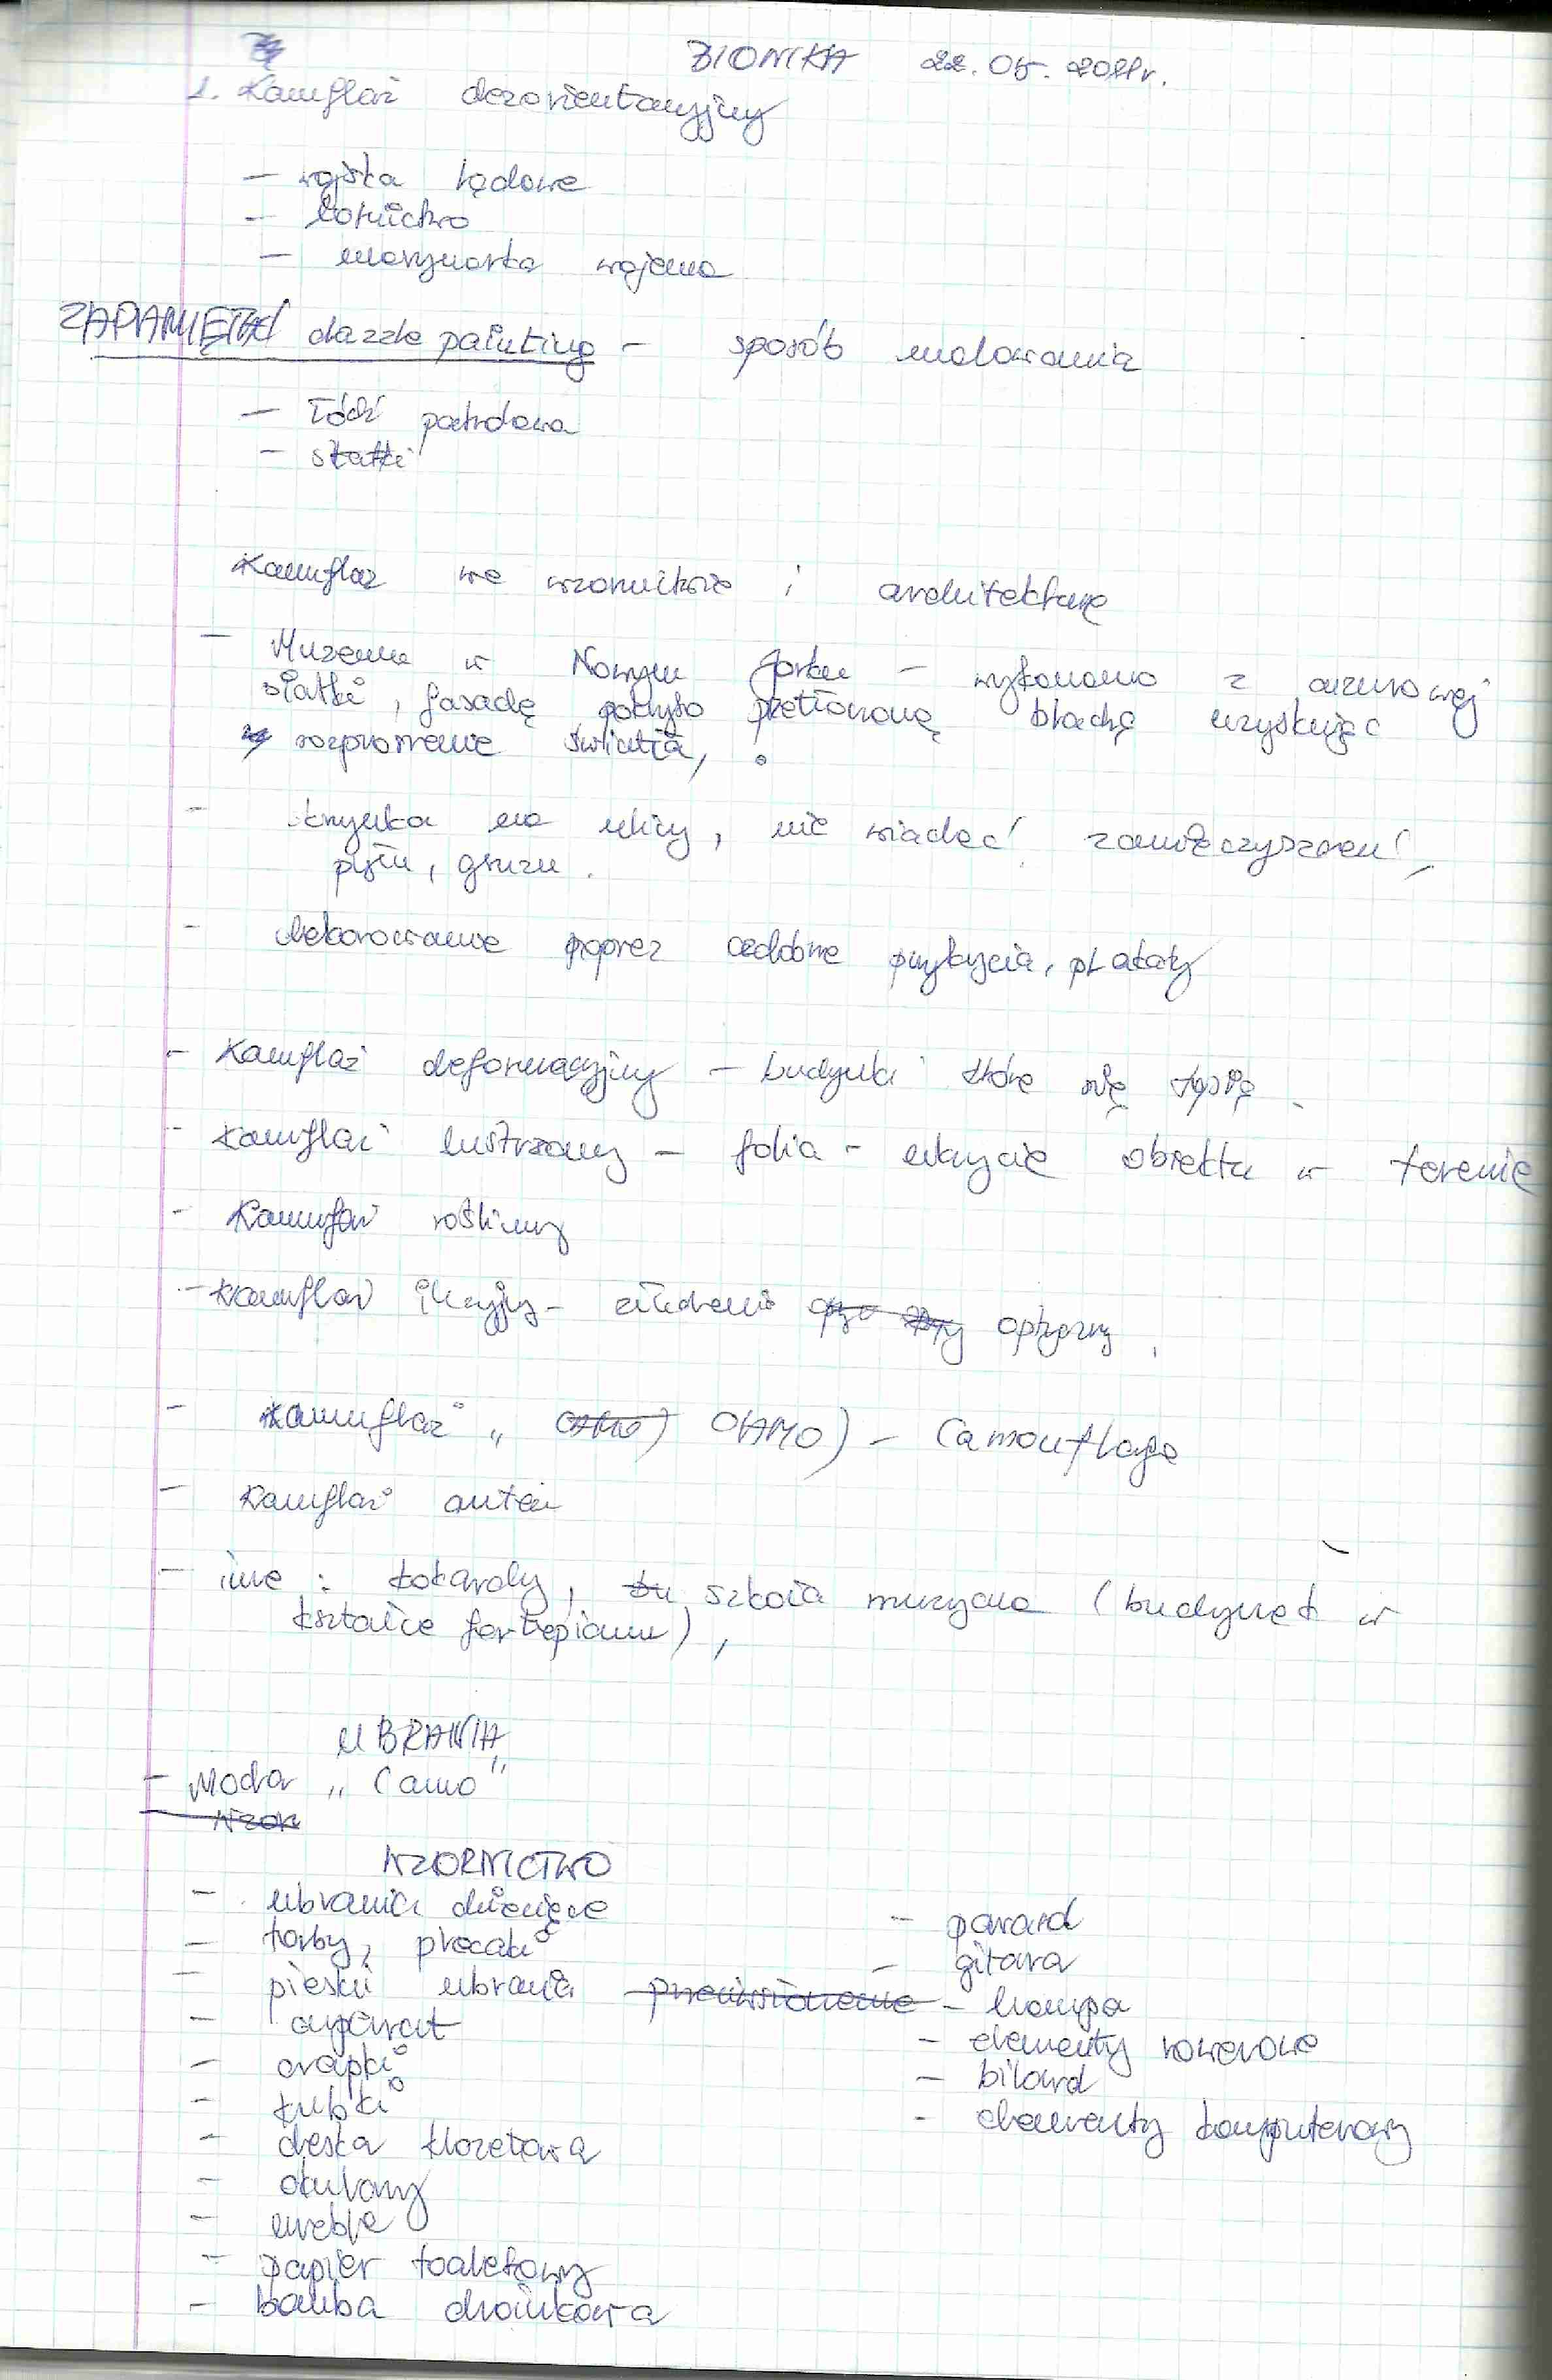 BIONIKA 22.05.2011r.
1. Kamuflaż dezorientacyjny
- wojska lądowe
- lotnictwo
- marynarka wojenna
ZAPAMIĘTAĆ dazzle painting - sposób malowania
- łódź patrolowa
- statki
Kamuflaż we wzornictwie i architekturze
- Muzeum w Nowym Jorku - wykonano z ażurowej
siatki, fasadę pokryto blachą uzyskując
rozproszenie światła,
- skrzynka na ulicy, nie widać zanieczyszczeń,
pyłu, gruzu.
- dekorowanie poprzez ozdobne przykrycia, plakaty
- Kamuflaż deformacyjny - budynki które się
- Kamuflaż lustrzany - folia - ukrycie obiektu w terenie
- Kamuflaż roślinny
- Kamuflaż iluzyjny - złudzenie optyczny.
- Kamuflaż „ CAMO) - Camouflage
- Kamuflaż anten
- inne : kokardy, szkoła muzyczna (budynek w
kształcie fortepianu),
UBRANIA
- Moda „Camo"
Wzor
WZORNICTWO
- ubrania dziecięce
- torby, plecaki
- pieski ubrania
- aparat
- czapki
- kubki
- deska klozetowa
- okulary
- meble
- papier toaletowy
- bombka choinkowa
- parawan
- gitara
- lampa
- elementy rowerowe
- bilard
- elementy komputerowy